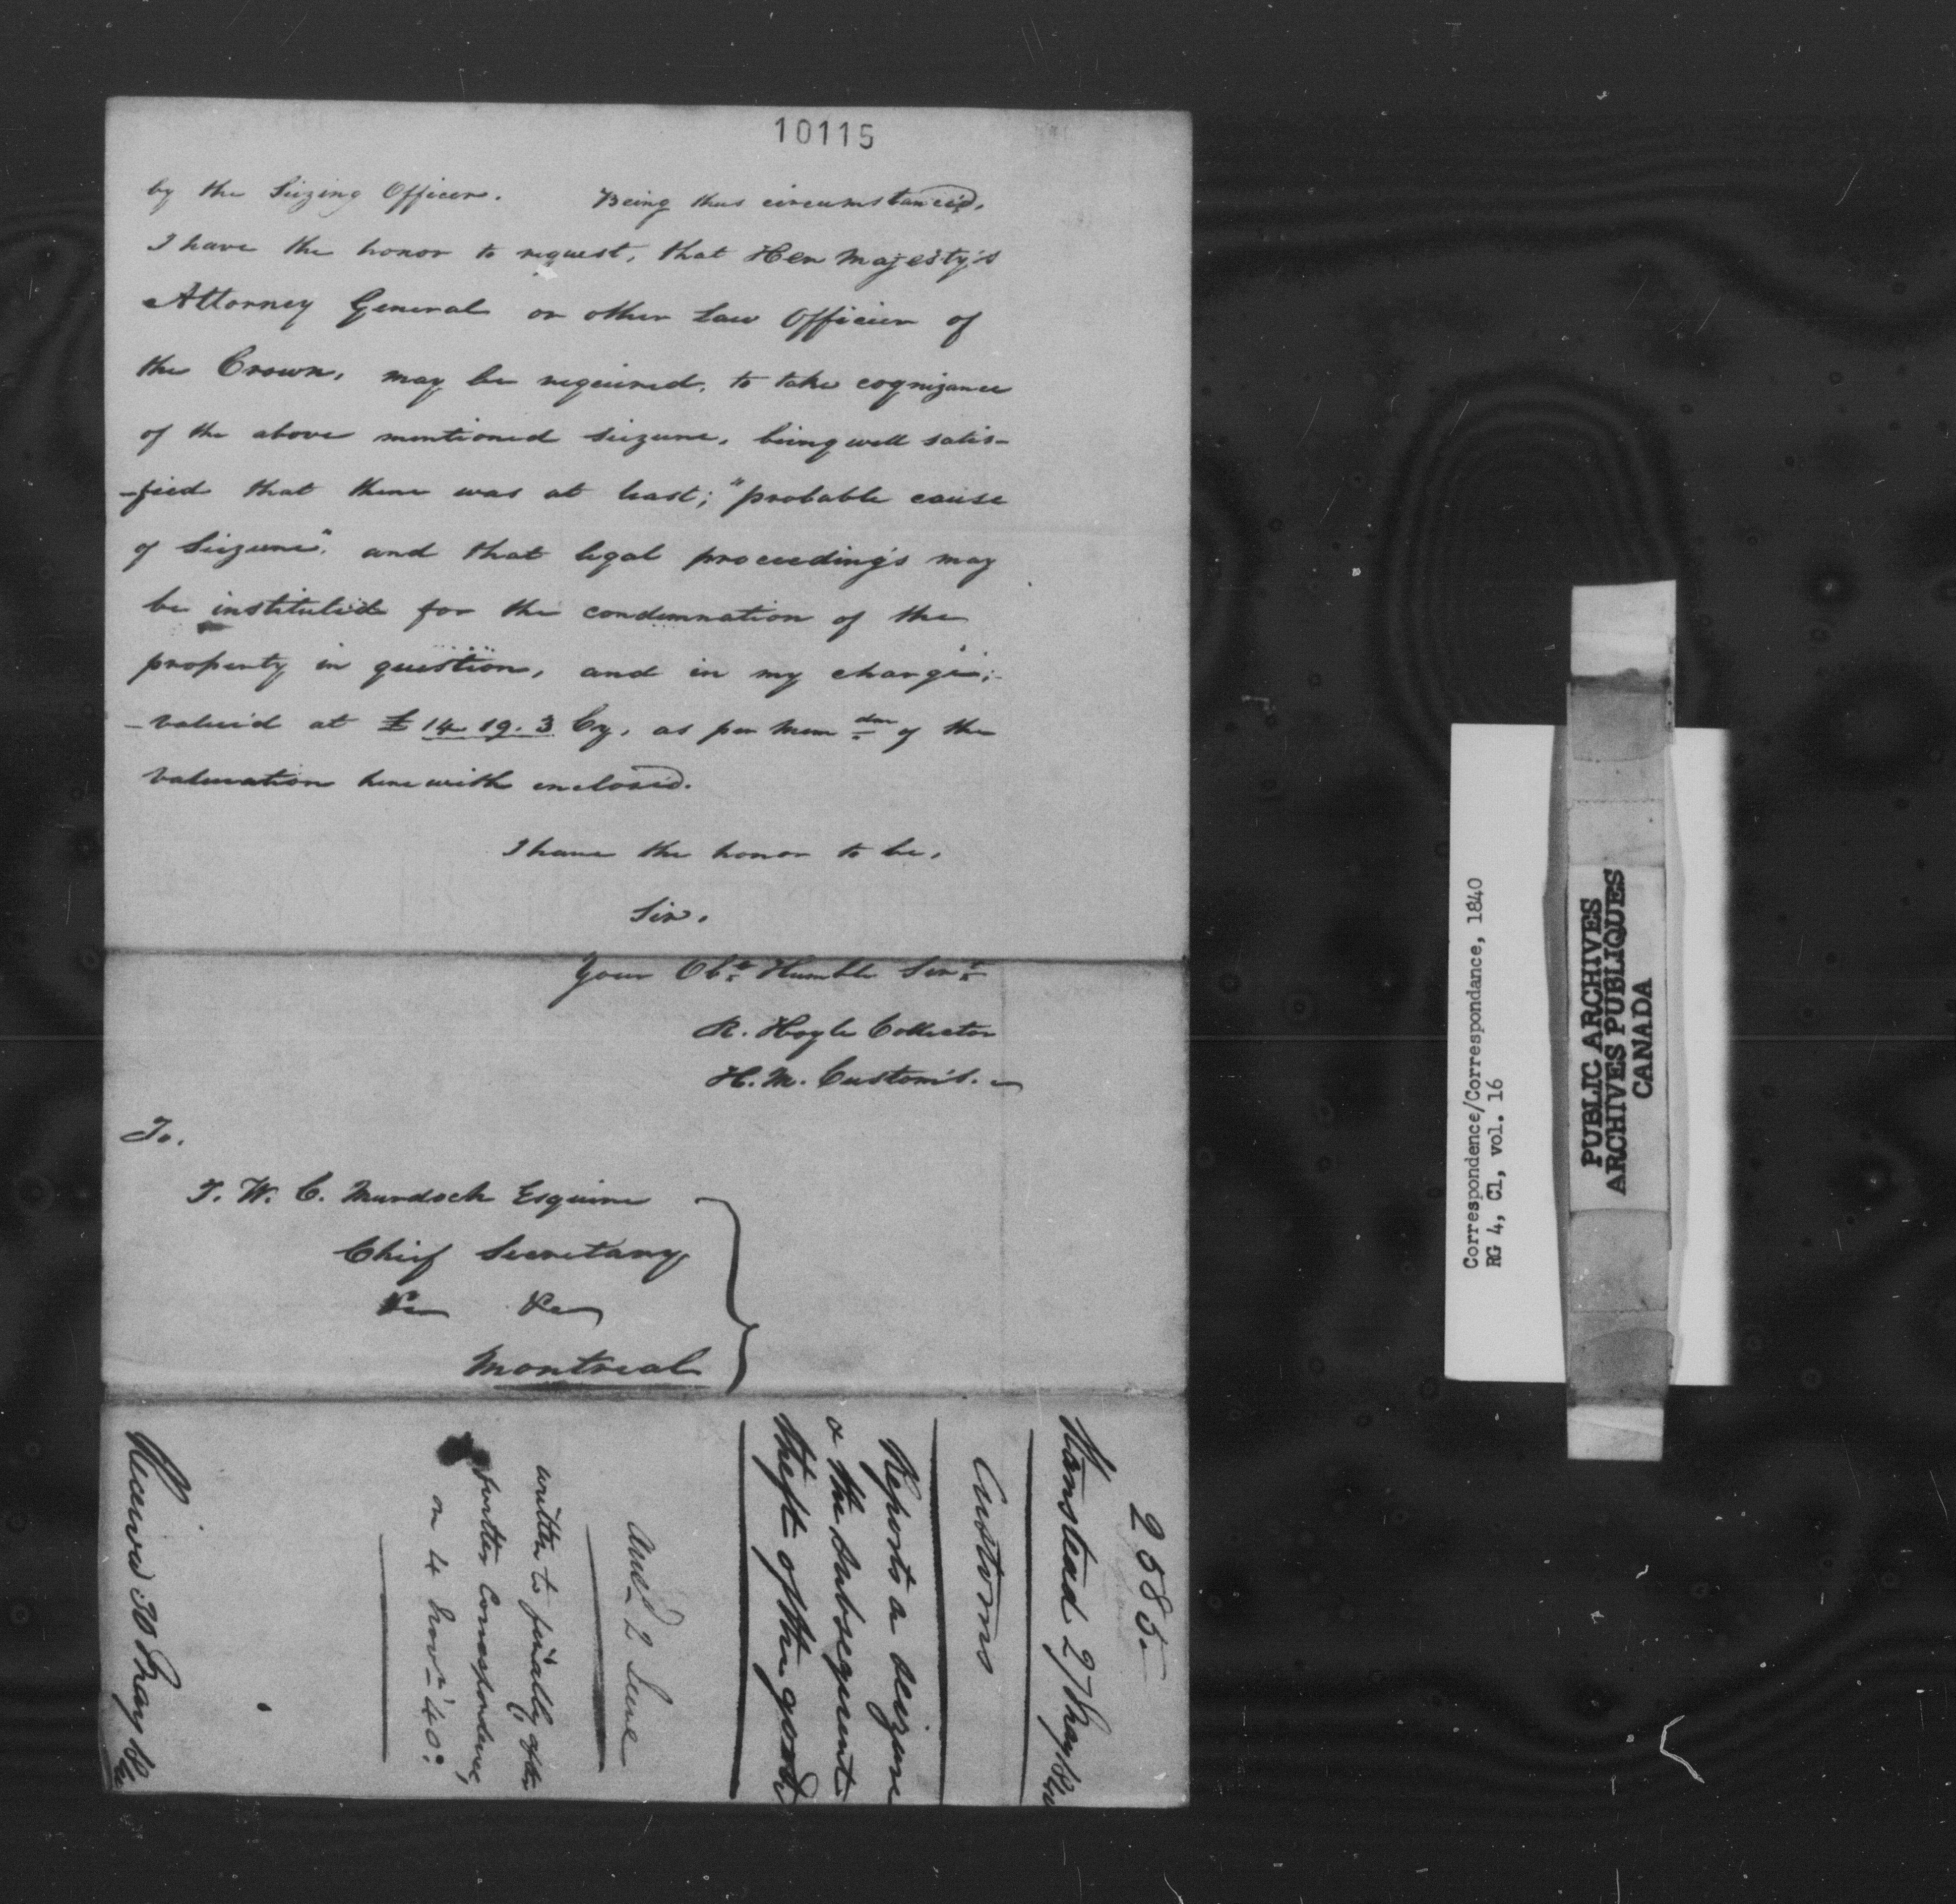 10115
by the Seizing Officer. Being thus circumstanced,
I have the honor to request, that Her Majesty's
Attorney General or other Law Officier of
the Crown, may be required, to take cognizance
of the above mentioned seizure, being well satis-
-fied that there was at least; "probable cause
of Seizure", and that legal proceeding's may
be instituted for the condemnation of the
property in question, and in my charge;
- valued at £ 14. 19. 3 Cy, as per Mem dm of the
valuation herewith enclosed.
I have the honor to be,
Sir,
Your Obt Humble Servt
R. Hoyle Collector
H. M. Custom's.
To.
T. W. C. Murdoch Esquire
Chief Secretary
&c &c
Montreal
2585
Stanstead 27 May 1840
Customs
Reports a seizure
& the subsequent
theft of the goods
Ansd 2 June
written to finally after
further Correspondence,
on 4 Novr '40:
Received 30 May
Correspondence/Correspondance, 1840
RG 4, C1, vol. 16
PUBLIC ARCHIVES
ARCHIVES PUBLIQUES
CANADA